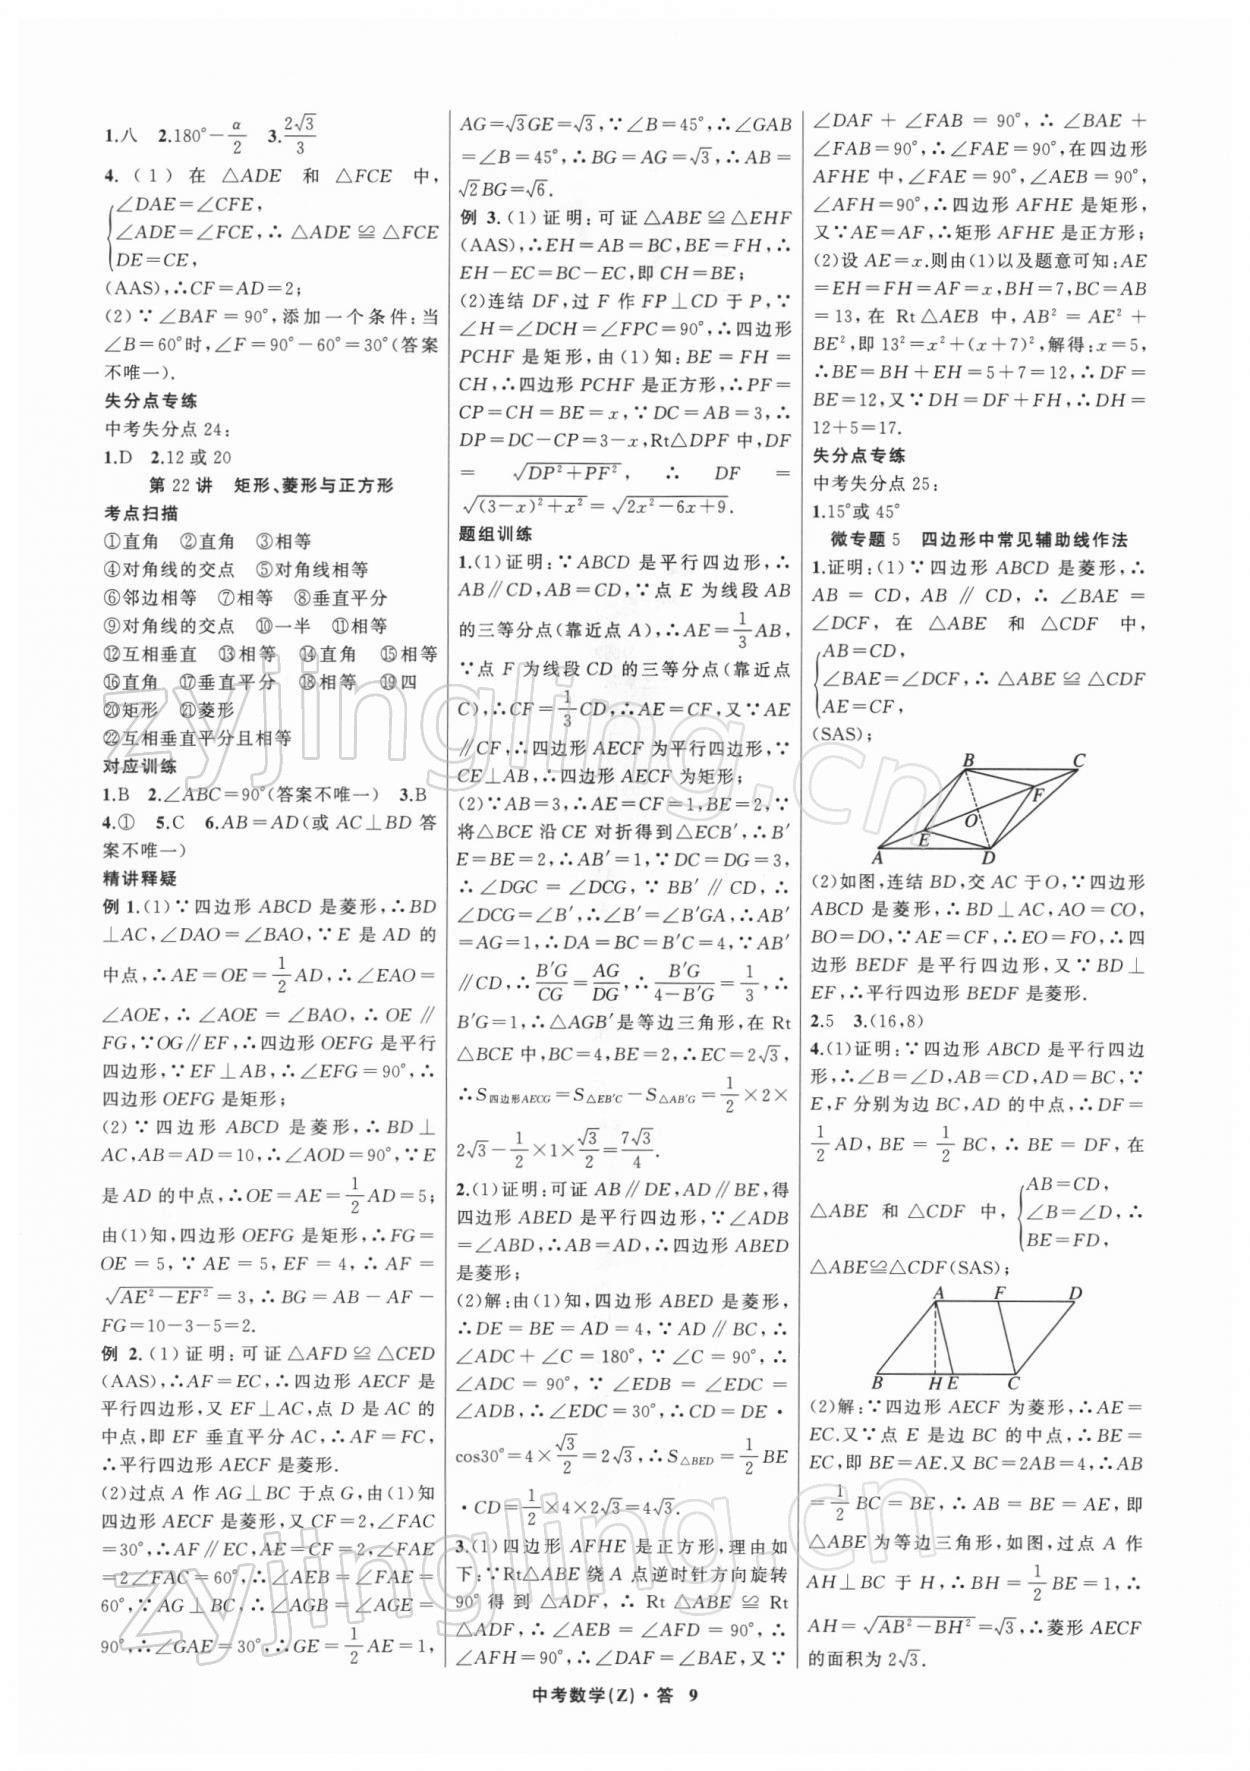 1.八 2.180°－α/2 3.2√3/3
4.(1)在△ADE 和△FCE 中，
{∠DAE=∠CFE，
∠ADE=∠FCE，∴△ADE≌△FCE
DE=CE，
(AAS)，∴CF=AD=2；
(2)∵∠BAF=90°，添加一个条件：当
∠B=60°时，∠F=90°－60°=30°(答案
不唯一).
失分点专练
中考失分点 24：
1.D 2.12 或 20
第 22 讲 矩形、菱形与正方形
考点扫描
①直角 ②直角 ③相等
④对角线的交点 ⑤对角线相等
⑥邻边相等 ⑦相等 ⑧垂直平分
⑨对角线的交点 ⑩一半 ⑪相等
⑫互相垂直 ⑬相等 ⑭直角 ⑮相等
⑯直角 ⑰垂直平分 ⑱相等 ⑲四
⑳矩形 ㉑菱形
㉒互相垂直平分且相等
对应训练
1.B 2.∠ABC=90°(答案不唯一) 3.B
4.① 5.C 6.AB=AD(或 AC⊥BD 答
案不唯一)
精讲释疑
例 1.(1)∵四边形 ABCD 是菱形，∴BD
⊥AC，∠DAO=∠BAO，∵E 是 AD 的
中点，∴AE=OE=1/2AD，∴∠EAO=
∠AOE，∴∠AOE=∠BAO，∴OE∥
FG，∵OG∥EF，∴四边形 OEFG 是平行
四边形，∵EF⊥AB，∴∠EFG=90°，∴
四边形 OEFG 是矩形；
(2)∵四边形 ABCD 是菱形，∴BD⊥
AC，AB=AD=10，∴∠AOD=90°，∵E
是 AD 的中点，∴OE=AE=1/2AD=5；
由(1)知，四边形 OEFG 是矩形，∴FG=
OE=5，∵AE=5，EF=4，∴AF=
√(AE²－EF²)=3，∴BG=AB－AF－
FG=10－3－5=2.
例 2.(1)证明：可证△AFD≌△CED
(AAS)，∴AF=EC，∴四边形 AECF 是
平行四边形，又 EF⊥AC，点 D 是 AC 的
中点，即 EF 垂直平分 AC，∴AF=FC，
∴平行四边形 AECF 是菱形.
(2)过点 A 作 AG⊥BC 于点 G，由(1)知
四边形 AECF 是菱形，又 CF=2，∠FAC
=30°，∴AF∥EC，AE=CF=2，∠FAE
=2∠FAC=60°，∴∠AEB=∠FAE=
60°，∵AG⊥BC，∴∠AGB=∠AGE=
90°，∴∠GAE=30°，∴GE=1/2AE=1，
AG=√3GE=√3，∵∠B=45°，∴∠GAB
=∠B=45°，∴BG=AG=√3，∴AB=
√2BG=√6.
例 3.(1)证明：可证△ABE≌△EHF
(AAS)，∴EH=AB=BC，BE=FH，∴
EH－EC=BC－EC，即 CH=BE；
(2)连结 DF，过 F 作 FP⊥CD 于 P，∵
∠H=∠DCH=∠FPC=90°，∴四边形
PCHF 是矩形，由(1)知：BE=FH=
CH，∴四边形 PCHF 是正方形，∴PF=
CP=CH=BE=x，∵DC=AB=3，∴
DP=DC－CP=3－x，Rt△DPF 中，DF
=√(DP²＋PF²)，∴DF=
√((3－x)²＋x²)=√(2x²－6x＋9).
题组训练
1.(1)证明：∵ABCD 是平行四边形，∴
AB∥CD，AB=CD，∵点 E 为线段 AB
的三等分点(靠近点 A)，∴AE=1/3AB，
∵点 F 为线段 CD 的三等分点(靠近点
C)，∴CF=1/3CD，∴AE=CF，又∵AE
∥CF，∴四边形 AECF 为平行四边形，∵
CE⊥AB，∴四边形 AECF 为矩形；
(2)∵AB=3，∴AE=CF=1，BE=2，∵
将△BCE 沿 CE 对折得到△ECB′，∴B′
E=BE=2，∴AB′=1，∵DC=DG=3，
∴∠DGC=∠DCG，∵BB′∥CD，∴
∠DCG=∠B′，∴∠B′=∠B′GA，∴AB′
=AG=1，∴DA=BC=B′C=4，∵AB′
∥CD，∴B′G/CG=AG/DG，∴B′G/(4－B′G)=1/3，∴
B′G=1，∴△AGB′是等边三角形，在 Rt
△BCE 中，BC=4，BE=2，∴EC=2√3，
∴S四边形AECG=S△EB′C－S△AB′G=1/2×2×
2√3－1/2×1×√3/2=7√3/4.
2.(1)证明：可证 AB∥DE，AD∥BE，得
四边形 ABED 是平行四边形，∵∠ADB
=∠ABD，∴AB=AD，∴四边形 ABED
是菱形；
(2)解：由(1)知，四边形 ABED 是菱形，
∴DE=BE=AD=4，∵AD∥BC，∴
∠ADC＋∠C=180°，∵∠C=90°，∴
∠ADC=90°，∵∠EDB=∠EDC=
∠ADB，∴∠EDC=30°，∴CD=DE·
cos30°=4×√3/2=2√3，∴S△BED=1/2BE
·CD=1/2×4×2√3=4√3.
3.(1)四边形 AFHE 是正方形，理由如
下：∵Rt△ABE 绕 A 点逆时针方向旋转
90°得到△ADF，∴Rt△ABE≌Rt
△ADF，∴∠AEB=∠AFD=90°，∴
∠AFH=90°，∴∠DAF=∠BAE，又∵
∠DAF＋∠FAB=90°，∴∠BAE＋
∠FAB=90°，∴∠FAE=90°，在四边形
AFHE 中，∠FAE=90°，∠AEB=90°，
∠AFH=90°，∴四边形 AFHE 是矩形，
又∵AE=AF，∴矩形 AFHE 是正方形；
(2)设 AE=x.则由(1)以及题意可知：AE
=EH=FH=AF=x，BH=7，BC=AB
=13，在 Rt△AEB 中，AB²=AE²＋
BE²，即 13²=x²＋(x＋7)²，解得：x=5，
∴BE=BH＋EH=5＋7=12，∴DF=
BE=12，又∵DH=DF＋FH，∴DH=
12＋5=17.
失分点专练
中考失分点 25：
1.15°或 45°
微专题 5 四边形中常见辅助线作法
1.证明：(1)∵四边形 ABCD 是菱形，∴
AB=CD，AB∥CD，∴∠BAE=
∠DCF，在△ABE 和△CDF 中，
{AB=CD，
∠BAE=∠DCF，∴△ABE≌△CDF
AE=CF，
(SAS)；
B C
F
O
E
A D
(2)如图，连结 BD，交 AC 于 O，∵四边形
ABCD 是菱形，∴BD⊥AC，AO=CO，
BO=DO，∵AE=CF，∴EO=FO，∴四
边形 BEDF 是平行四边形，又∵BD⊥
EF，∴平行四边形 BEDF 是菱形.
2.5 3.(16,8)
4.(1)证明：∵四边形 ABCD 是平行四边
形，∴∠B=∠D，AB=CD，AD=BC，∵
E，F 分别为边 BC，AD 的中点，∴DF=
1/2AD，BE=1/2BC，∴BE=DF，在
△ABE 和△CDF 中，{AB=CD，
∠B=∠D，∴
BE=FD，
△ABE≌△CDF(SAS)；
A F D
B H E C
(2)解：∵四边形 AECF 为菱形，∴AE=
EC.又∵点 E 是边 BC 的中点，∴BE=
EC，即 BE=AE.又 BC=2AB=4，∴AB
=1/2BC=BE，∴AB=BE=AE，即
△ABE 为等边三角形，如图，过点 A 作
AH⊥BC 于 H，∴BH=1/2BE=1，∴
AH=√(AB²－BH²)=√3，∴菱形 AECF
的面积为 2√3.
中考数学(Z)·答 9
zyjingling.cn
zyjingling.cn